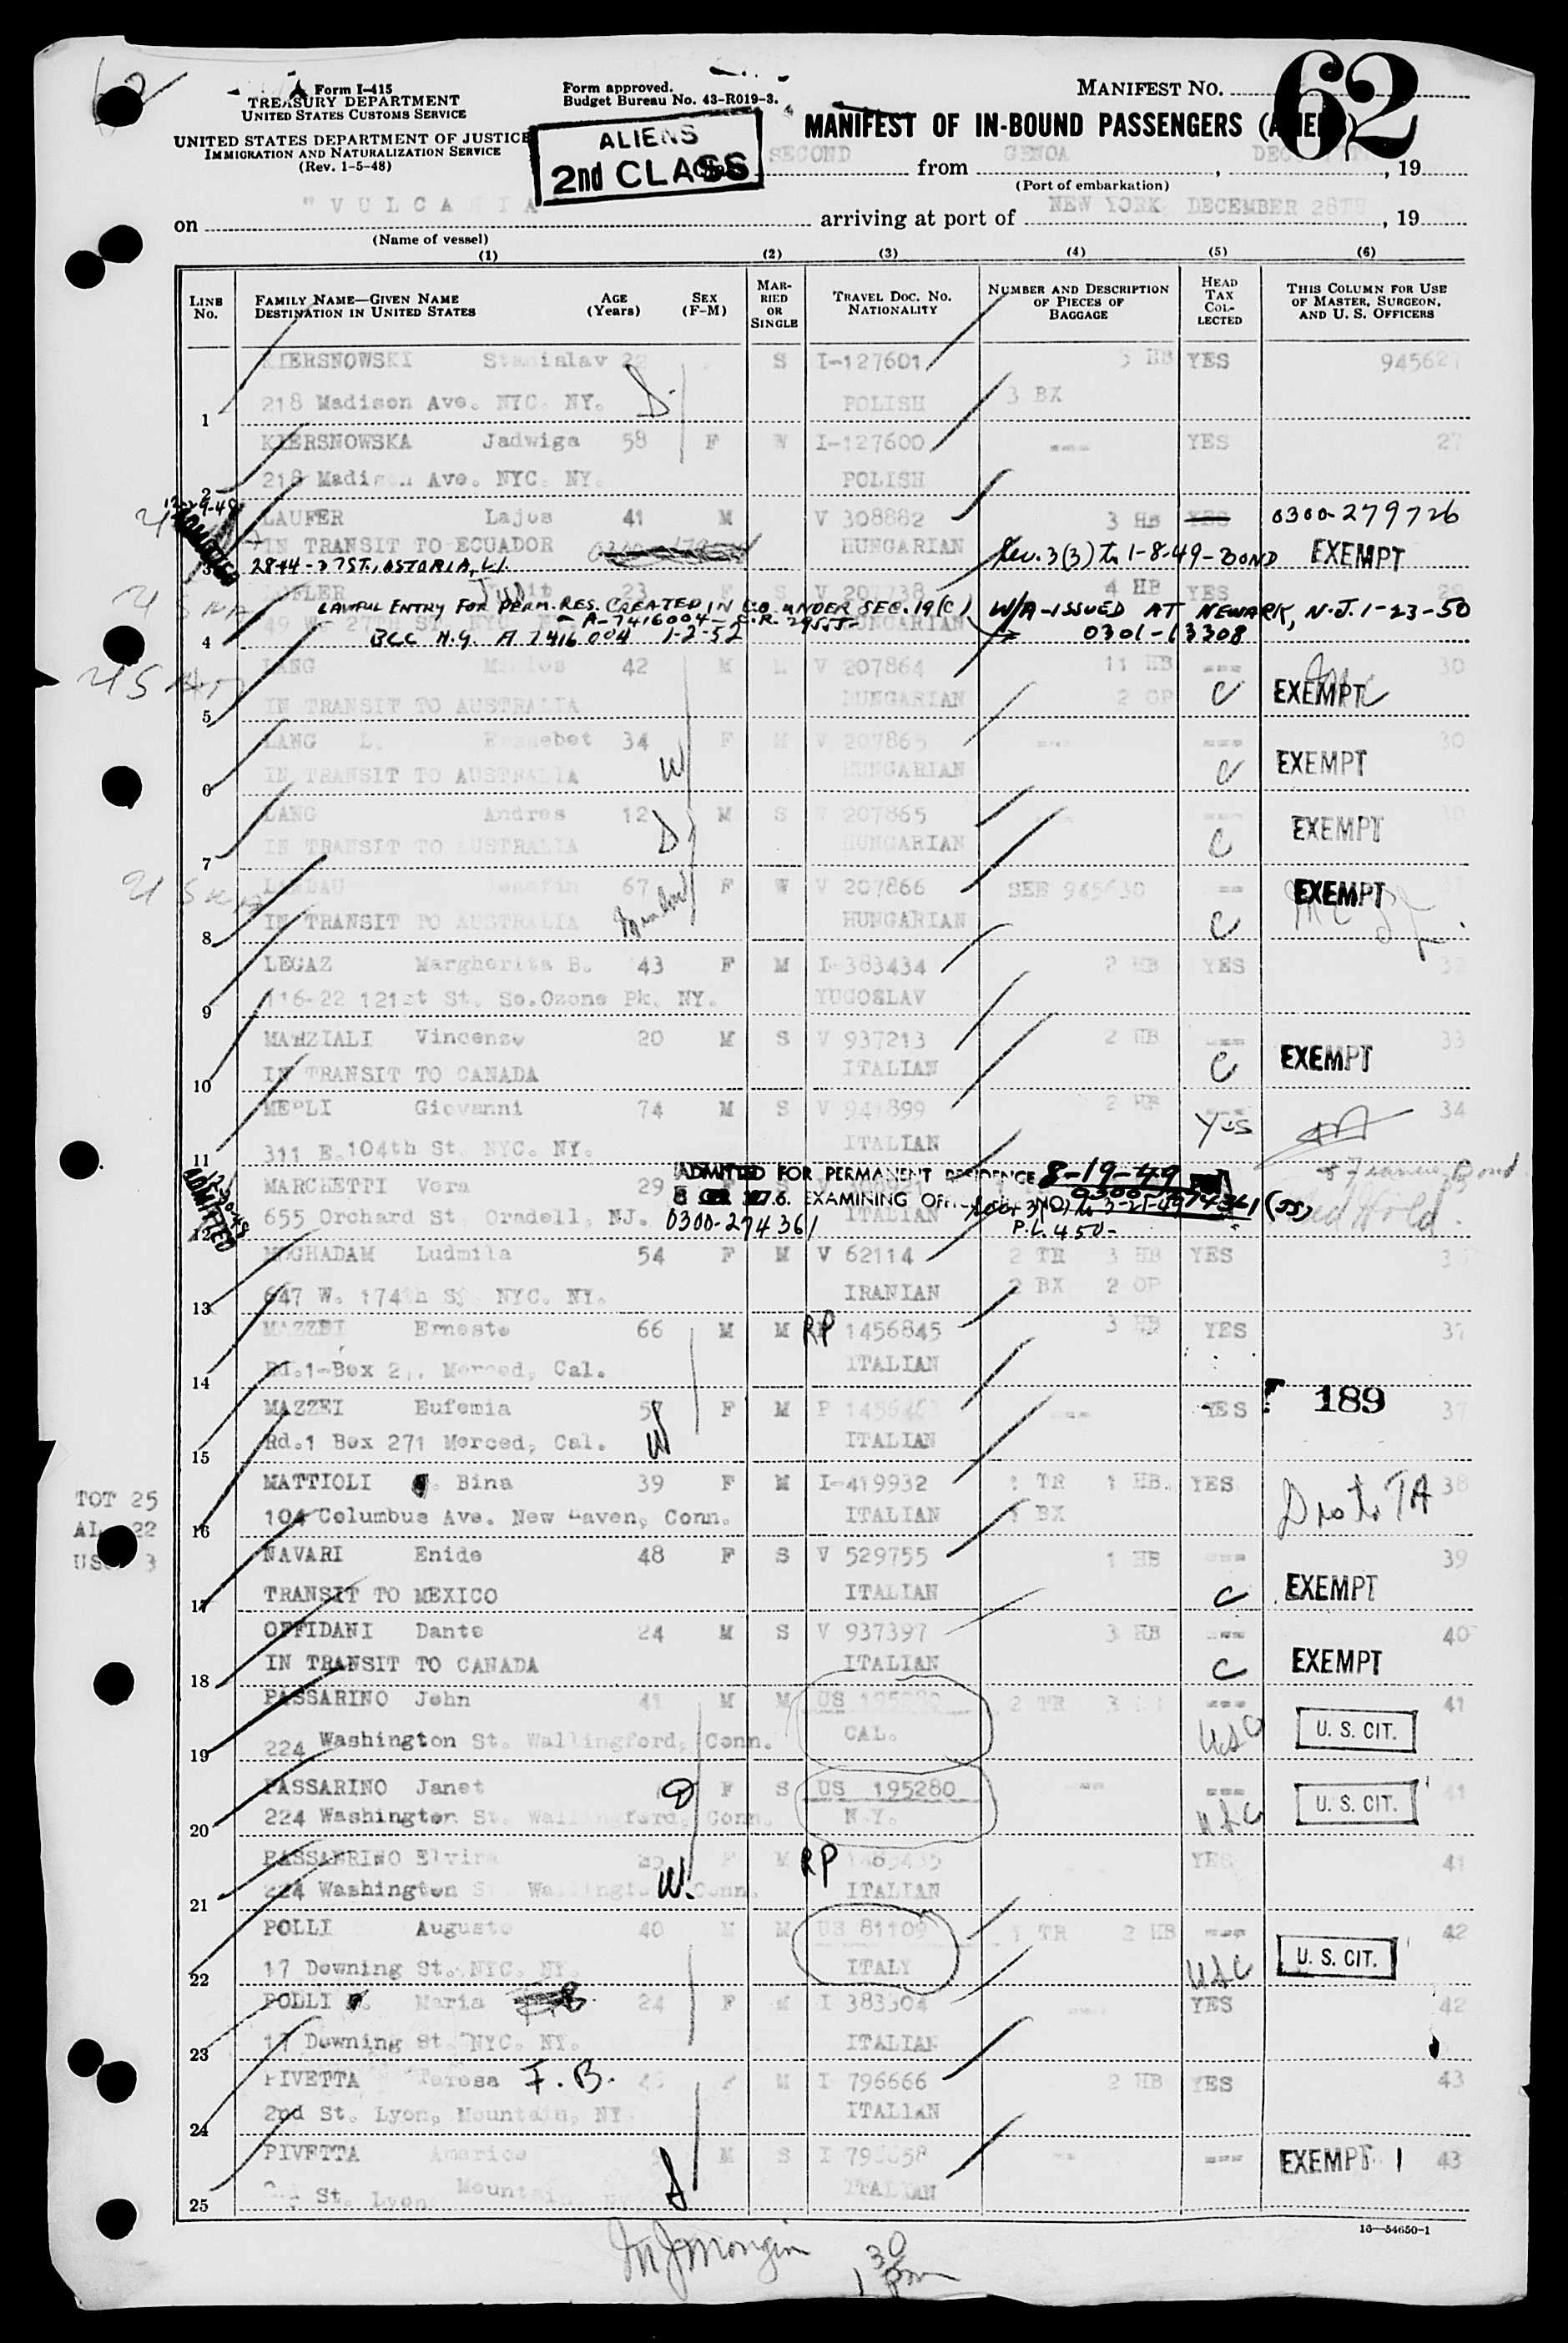 62
Form I-415
TREASURY DEPARTMENT
UNITED STATES CUSTOMS SERVICE
UNITED STATES DEPARTMENT OF JUSTICE
IMMIGRATION AND NATURALIZATION SERVICE
(Rev. 1-5-48)
Form approved.
Budget Bureau No. 43-R019-3.
ALIENS
2nd CLASS
MANIFEST NO. 62
MANIFEST OF IN-BOUND PASSENGERS
SECOND from GENOA, 19
(Port of embarkation)
on "VULCANIA arriving at port of NEW YORK, DECEMBER 28TH, 19
(Name of vessel)
(1) (2) (3) (4) (5) (6)
LINE No.
FAMILY NAME—GIVEN NAME
DESTINATION IN UNITED STATES
AGE (Years)
SEX (F-M)
MARRIED OR SINGLE
TRAVEL DOC. NO. NATIONALITY
NUMBER AND DESCRIPTION OF PIECES OF BAGGAGE
HEAD TAX COLLECTED
THIS COLUMN FOR USE OF MASTER, SURGEON, AND U. S. OFFICERS
KIERSNOWSKI Stanislav 22 S I-127601 5 HB YES 945627
1 218 Madison Ave. NYC. NY. POLISH 3 BX
KIERSNOWSKA Jadwiga 58 F W I-127600 --- YES 27
2 218 Madison Ave. NYC. NY. POLISH
12-29-48 ADMITTED
LAUFER Lajos 41 M V 308882 3 HB YES 0300-279726
IN TRANSIT TO ECUADOR HUNGARIAN 3(3) to 1-8-49-BOND EXEMPT
3 28-44-27 ST., ASTORIA, L.I.
23 F S V 207738 4 HB YES
LAWFUL ENTRY FOR PERM. RES. CREATED IN C.O. UNDER SEC. 19(C) W/A-ISSUED AT NEWARK, N.J. 1-23-50
49 W. 27TH ST. A-7416004 HUNGARIAN 0301-13308
4 A 7416004 1-2-52
LANG 42 M M V 207864 11 HB --- 30
5 IN TRANSIT TO AUSTRALIA HUNGARIAN 2 OP C EXEMPT
LANG 34 F M V 207865 --- --- 30
6 IN TRANSIT TO AUSTRALIA W HUNGARIAN C EXEMPT
LANG Andres 12 M S V 207865
7 IN TRANSIT TO AUSTRALIA D HUNGARIAN C EXEMPT
LANDAU 67 F W V 207866 SEE 945630 -- EXEMPT
8 IN TRANSIT TO AUSTRALIA HUNGARIAN C
LEGAZ Margherita B. 43 F M I-383434 2 HB YES 32
9 116-22 121st St. So.Ozone Pk. NY. YUGOSLAV
MARZIALI Vincenzo 20 M S V 937213 2 HB --- 33
10 IN TRANSIT TO CANADA ITALIAN C EXEMPT
MERLI Giovanni 74 M S 2 HB Yes 34
11 311 E.104th St. NYC. NY. ITALIAN
ADMITTED
ADMITTED FOR PERMANENT RESIDENCE 8-19-49
MARCHETTI Vera 29
12 655 Orchard St, Oradell, NJ. 0300-274361 ITALIAN
P.L. 450-
MOGHADAM Ludmila 54 F M V 62114 2 TR 3 HB YES
13 647 W. 174th St. NYC. NY. IRANIAN 2 BX 2 OP
MAZZEI Ernesto 66 M M RP 1456845 3 HB YES 37
14 Rd.1-Box 2 Merced, Cal. ITALIAN
MAZZEI Eufemia 57 F M P --- YES 189 37
15 Rd.1 Box 271 Merced, Cal. W ITALIAN
MATTIOLI Bina 39 F M I-419932 1 TR 1 HB. YES 38
16 104 Columbus Ave. New Haven, Conn. ITALIAN 1 BX
TOT 25
22
3
NAVARI Enide 48 F S V 529755 1 HB --- 39
17 TRANSIT TO MEXICO ITALIAN C EXEMPT
OFFIDANI Dante 24 M S V 937397 3 HB --- 40
18 IN TRANSIT TO CANADA ITALIAN C EXEMPT
PASSARINO John 41 M M US 2 TR 3 --- 41
19 224 Washington St. Wallingford, Conn. CAL. USC U. S. CIT.
PASSARINO Janet F S US 195280 --- --- 41
20 224 Washington St. Wallingford, Conn. N.Y. USC U. S. CIT.
PASSARRINO Elvira F M RP YES 41
21 224 Washington St. Wallingford, Conn. W. ITALIAN
POLLI Augusto 40 M M US 81109 1 TR 2 HB --- 42
22 17 Downing St. NYC. NY. ITALY USC U. S. CIT.
POLLI Maria 24 F M I 383304 YES 42
23 17 Downing St. NYC. NY. ITALIAN
PIVETTA Teresa F.B. F M I 796666 2 HB YES 43
24 2nd St. Lyon, Mountain, NY. ITALIAN
PIVETTA Americo M S I -- --- EXEMPT 1 43
25 2nd St. Lyon, Mountain, NY ITALIAN
16—54650-1
1 30 pm